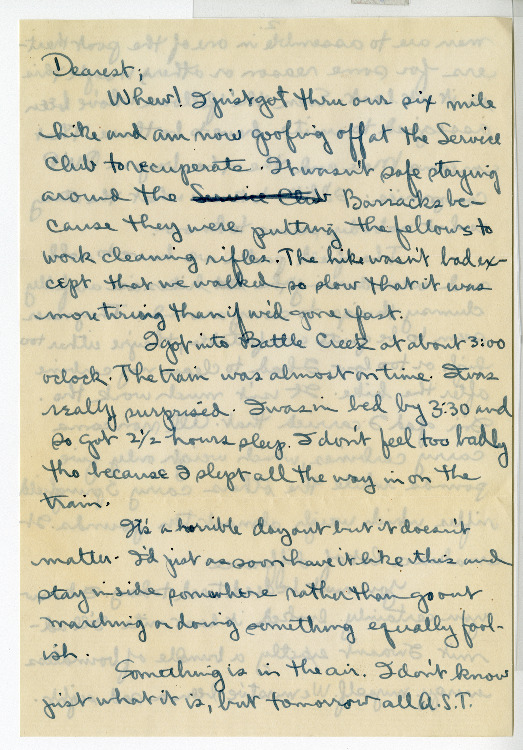 Dearest;
Whew! I just got thru our six mile
hike and am now goofing off at the Service
Club to recuperate. It wasn't safe staying
around the Service Club Barracks be-
cause they were putting the fellows to
work cleaning rifles. The hike wasn't bad ex-
cept that we walked so slow that it was
more tiring than if we'd gone fast.
I got into Battle Creek at about 3:00
o'clock. The train was almost on time. I was
really surprised. I was in bed by 3:30 and
so got 2 1/2 hours sleep. I don't feel too badly
tho because I slept all the way in on the
train.
It's a horrible day out but it doesn't
matter. I'd just as soon have it like this and
stay inside somewhere rather than go out
marching or doing something equally fool-
ish.
Something is in the air. I don't know
just what it is, but tomorrow all A.S.T.